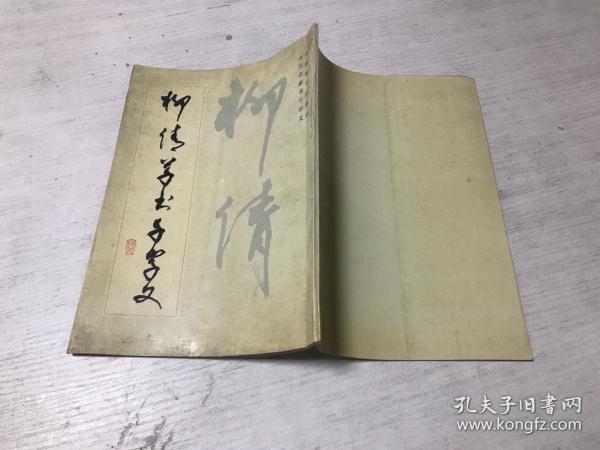 柳倩草书千字文
柳倩
孔夫子旧书网
www.kongfz.com